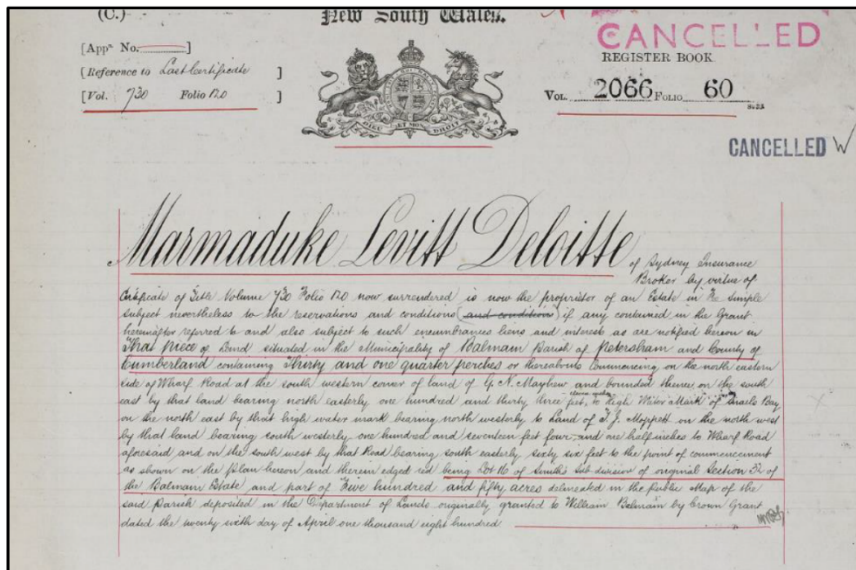 (C.)
New South Wales.
CANCELLED
[Appn No. ]
REGISTER BOOK.
[Reference to Last Certificate ]
[Vol. 730 Folio 120 ]
VOL. 2066 FOLIO 60
CANCELLED W
Marmaduke Levitt Deloitte
of Sydney Insurance
Broker by virtue of
Certificate of Title Volume 730 Folio 120 now surrendered is now the proprietor of an Estate in Fee simple
subject nevertheless to the reservations and conditions (and conditions) if any contained in the Grant
hereinafter referred to and also subject to such encumbrances liens and interests as are notified hereon in
That piece of Land situated in the Municipality of Balmain Parish of Petersham and County of
Cumberland containing Thirty and one quarter perches or thereabouts Commencing on the north eastern
side of Wharf Road at the south western corner of land of G. N. Mayhew and bounded thence on the south
east by that land bearing north easterly one hundred and thirty three feet, to High Water Mark of Snails Bay
on the north east by that high water mark bearing north westerly to Land of T. J. Moppett on the north west
by that land bearing south westerly one hundred and seventeen feet four and one half inches to Wharf Road
aforesaid and on the south west by that Road bearing south easterly sixty six feet to the point of commencement
as shown on the plan hereon and therein edged red being Lot of Smiths Sub division of original Section of
the Balmain Estate and part of Five hundred and fifty acres delineated in the Public Map of the
said Parish deposited in the Department of Lands originally granted to William Balmain by Crown Grant
dated the twenty sixth day of April one thousand eight hundred